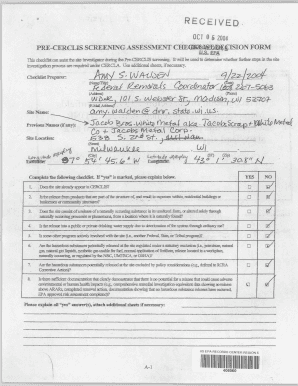 RECEIVED
OCT 06 2004
PRE-CERCLIS SCREENING ASSESSMENT CHECKLIST/DECISION FORM
U.S. EPA
This checklist can assist the site investigator during the Pre-CERCLIS screening. It will be used to determine whether further steps in the site
investigation process are required under CERCLA. Use additional sheets, if necessary.
Checklist Preparer: AMY S. WALDEN 9/22/2004
Federal Removals Coordinator
WDNR, 101 S. Webster St, Madison, WI 53707
(Address)
Site Name: amy.walden@dnr.state.wi.us
Previous Names (if any): Jacob Bros. White Metal aka Jacobs Scrap
Co + Jacobs Metal Corp.
Site Location:
Milwaukee WI
Complete the following checklist. If "yes" is marked, please explain below. YES NO
1. Does the site already appear in CERCLIS?
2. Is the release from products that are part of the structure of, and result in exposure within, residential buildings or
businesses or community structures?
3. Does the site consist of a release of a naturally occurring substance in its unaltered form, or altered solely through
naturally occurring processes or phenomena, from a location where it is naturally found?
4. Is the release into a public or private drinking water supply due to deterioration of the system through ordinary use?
5. Is some other program actively involved with the site (i.e., another Federal, State, or Tribal program)?
6. Are the hazardous substances potentially released at the site regulated under a statutory exclusion (i.e., petroleum, natural
gas, natural gas liquids, synthetic gas usable for fuel, normal application of fertilizer, release located in a workplace,
naturally occurring, or regulated by the NRC, UMTRCA, or OSHA)?
7. Are the hazardous substances potentially released at the site excluded by policy considerations (e.g., deferral to RCRA
Corrective Action)?
8. Is there sufficient documentation that clearly demonstrates that there is no potential for a release that could cause adverse
environmental or human health impacts
Please explain all "yes" answer(s), attach additional sheets if necessary:
A-1